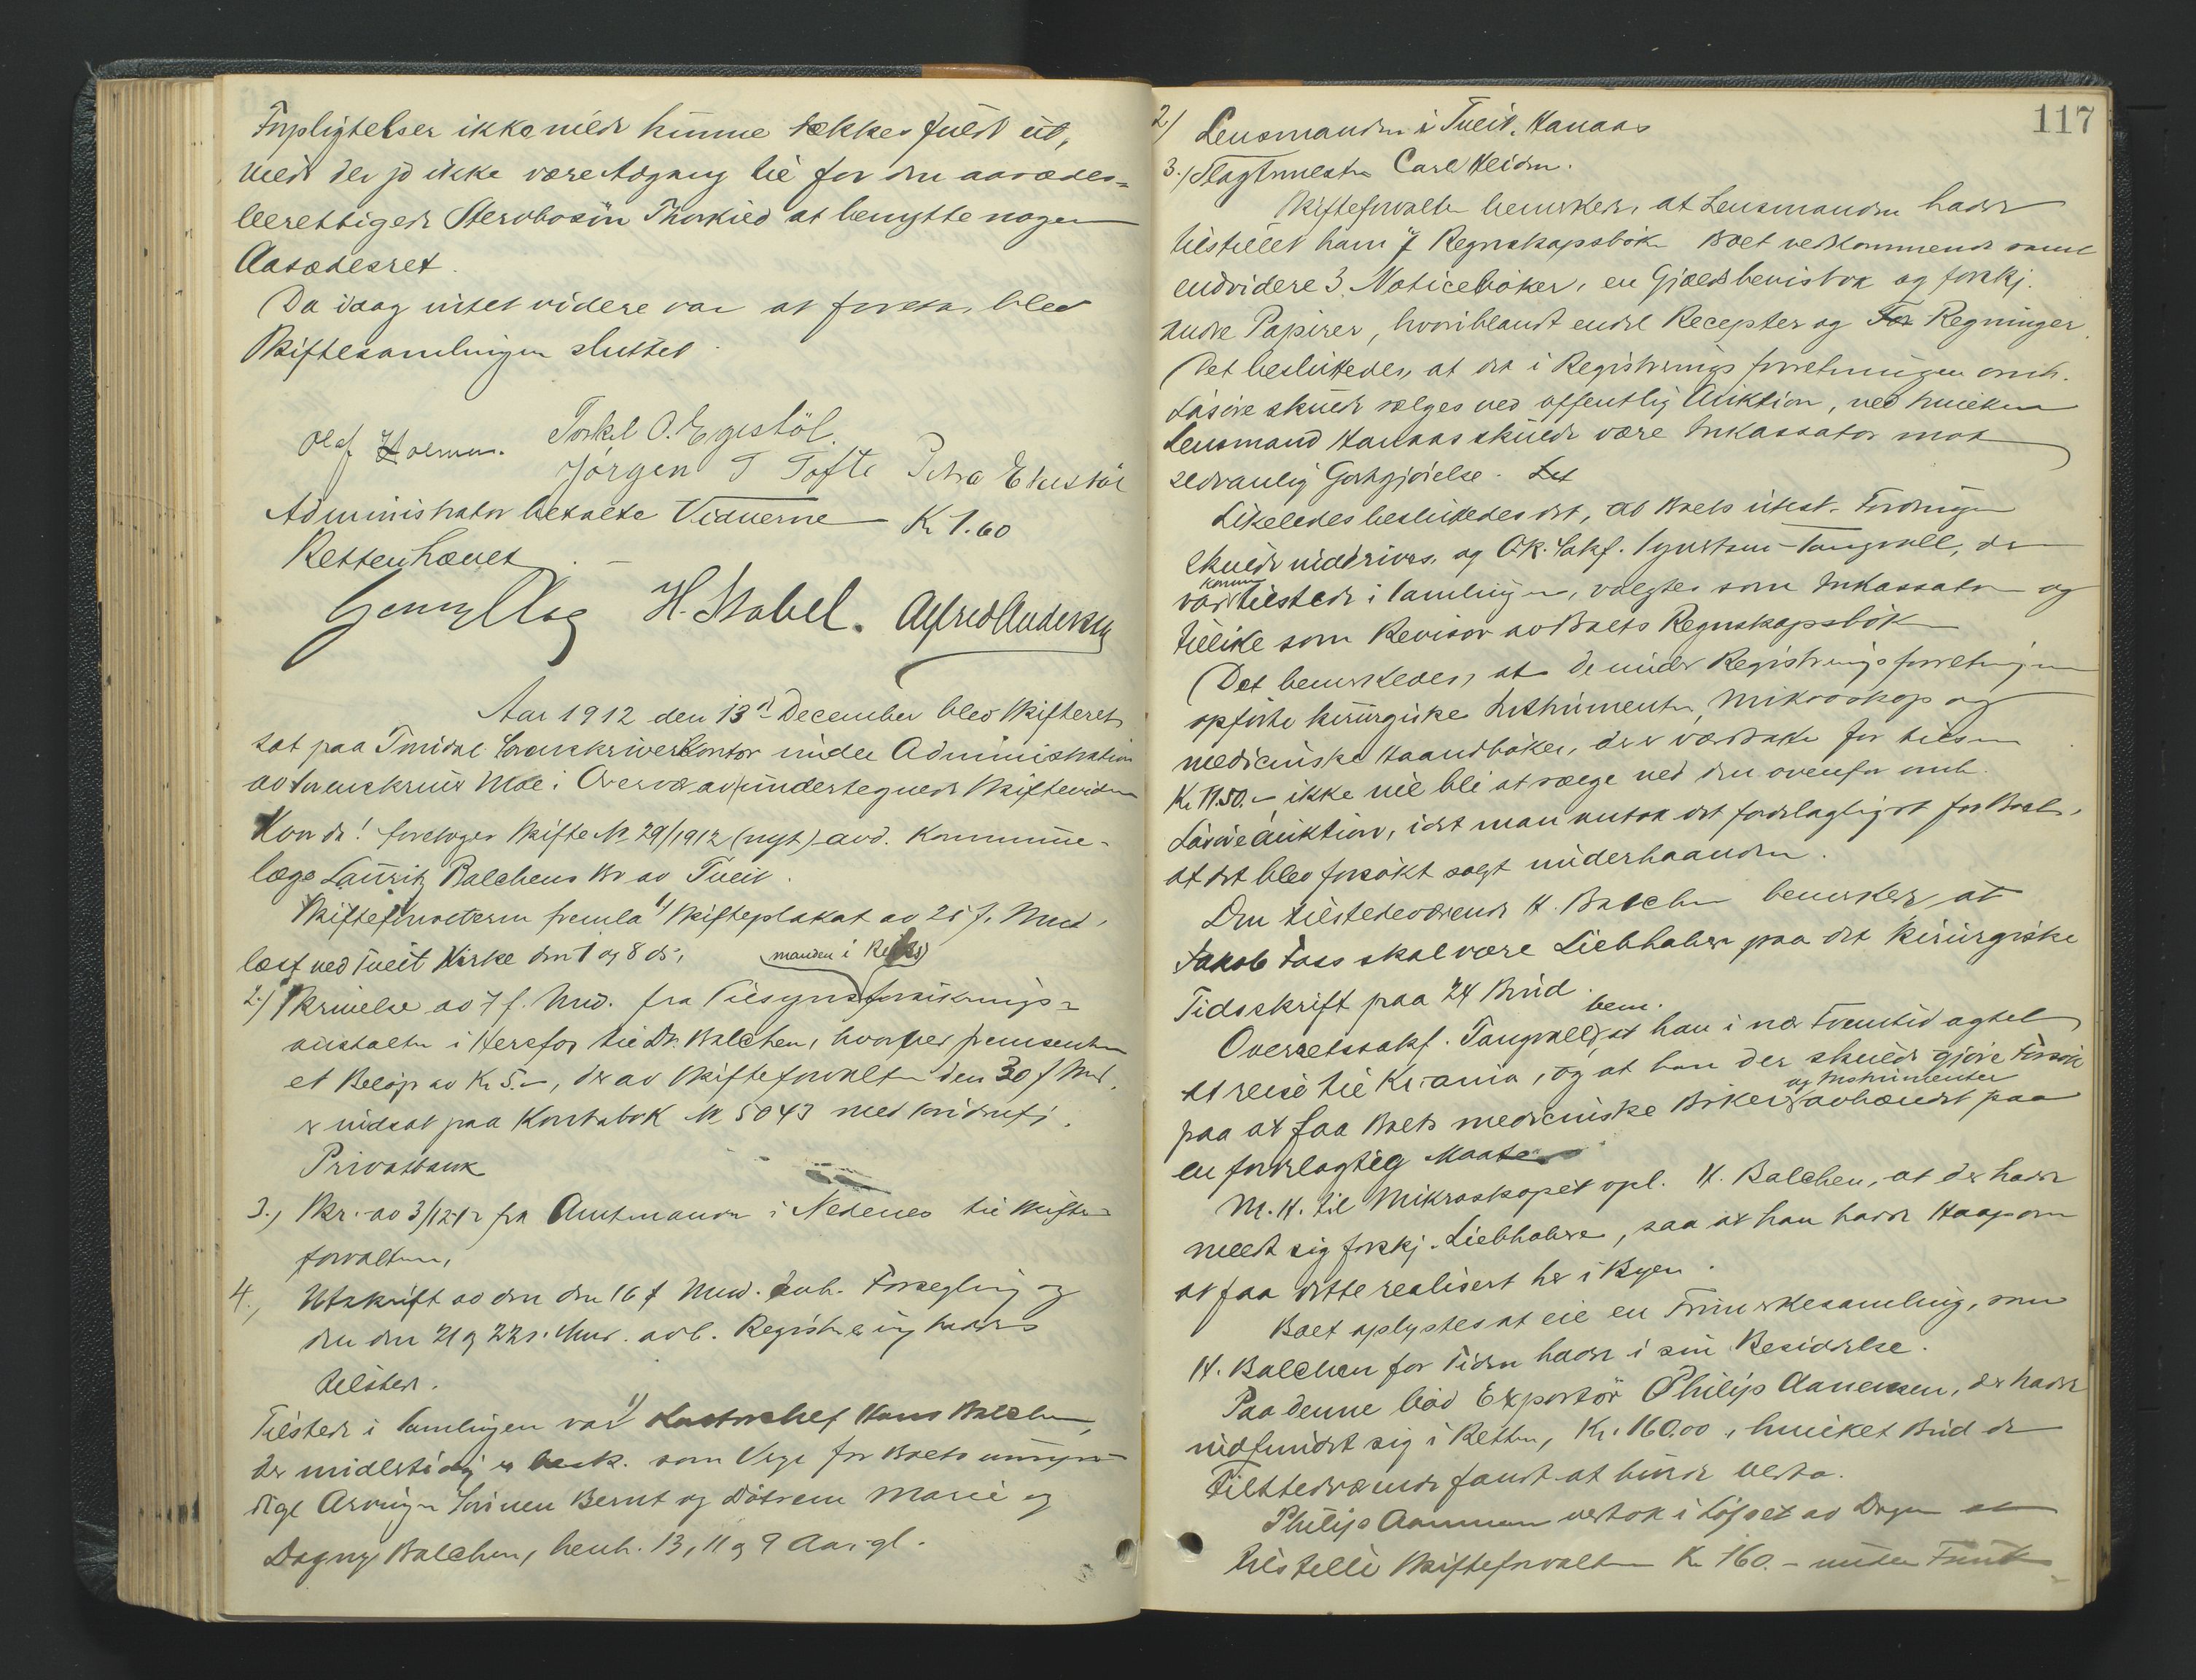 Forpligtelser ikke vilde kunne dækkes fuldt ut,
vilde der jo ikke være Adgang til for den aasædes-
berettigede Stervbosön Thorkild at benytte nogen
Aasædesret.
Da idag intet videre var at foreta, blev
Skiftesamlingen sluttet.
Olaf Holmen. Torkel O. Egestöl.
Jørgen T Tofte Petra Ekestöl
Administrator betalte Vidnerne Kr 1.60
Retten hævet. –
H. Stabel. Alfred Andersen
Aar 1912 den 13de December blev Skifteret
sat paa Tveidal Sorenskriverkontor under Administration
av Sorenskriver Moe i Overvær av undertegnede Skiftevidner
Hvorda! foretoges Skifte No 29/1912 (nyt) avd. Kommune-
læge Lauritz Balchens Bo av Tveit.
Skifteforvalteren fremla 1) Skifteplakat av 25 f. Mnd,
læst ved Tveit Kirke den 1 og 8 ds,
manden i
2.) Skrivelse av 7 f. Mnd. fra Tilsyns forsikrings-
anstalten i Herefos til Dr. Balchen, hvorved fremsendtes
et Beløp av Kr 5.–, der av Skifteforvalteren den 30 f Mnd.
er indsat paa Kontrabok No 5043 med
Privatbank
3., Skr. av 3/12-12 fra Amtmanden i Nedenes til Skifte-
forvalteren,
4., Utskrift av den den 16 f Mnd. avh. Forsegling og
den den 21 og 22 s. Mnd. avh. Registrering
tilstede.
Tilstede i Samlingen var 1) Kontorchef Hans Balchen,
der midlertidig er besk. som Verge for Boets umyn-
dige Arvinger Sönnen Bernt og Døtrene Marie og
Dagny Balchen, henh. 13, 11 og 9 Aar gl.
117
2) Lensmanden i Tveit, Hanaas
3.) Slagtmester Carl Heiden.
Skifteforvalter bemerkede, at Lensmanden havde
tilstillet ham 7 Regnskapsbøker Boet vedkommende samt
endvidere 3 Noticebøker, en Gjældsbevisbok og forskj.
andre Papirer, hvoriblandt endel Recepter og For Regninger.
Det besluttedes, at det i Registreringsforretningen omh.
Løsöre skulde sælges ved offentlig Auktion, ved hvilken
Lensmand Hanaas skulde være Inkassator mot
sedvanlig Godtgjörelse. Det
Likeledes besluttedes det, at Boets utest. Fordringer
skulde inddrives, og O.R. Sakf. Tangvall, der
kommen
var tilstede i Samlingen, valgtes som Inkassator og
tillike som Revisor av Boets Regnskapsbøk
Det bemerkedes, at de under Registreringsforretningen
opførte kirurgiske Instrumenter, Mikroskop og
medicinske Haandbøker, der er værdsatte for tilsm
Kr 19.50.– ikke vil bli at sælge ved den ovenfor omh.
Løsöreauktion, idet man antok det fordelagtigst for Boet,
at det blev forsøkt solgt underhaanden.
Den tilstedeværende H. Balchen bemerkede at
Jakob Faos skal være Liebhaber paa det kirurgiske
Tidsskrift paa 24 Bind.
bem.
Overretssakf. Tangvald, at han i nær Fremtid agtet
at reise til Kr.ania, og at han der skulde gjøre Forsøk
og Instrumenter
paa at faa Boets medicinske Bøker avhændet paa
en fordelagtig Maate.
M. H. til Mikroskopet opl. H. Balchen, at der havde
meldt sig forskj. Liebhabere, saa at han havde Haap om
at faa dette realisert her i Byen.
Boet oplystes at eie en Frimerkesamling, som
H. Balchen for Tiden havde i sin Besiddelse.
Paa denne bød Exportör Philip Aanensen, der havde
indfundet sig i Retten, Kr. 160.00, hvilket Bud de
Tilstedeværende fandt at burde vedta.
Philip Aanensen vedtok i Løpet av Dagen at
tilstille Skifteforvalteren Kr 160.– under